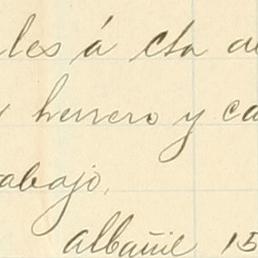 les á cta de
y herrero y ca
abajo,
albañil 15